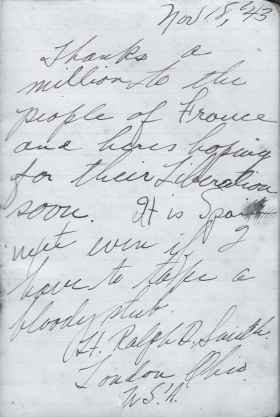 Nov 18, '43
Thanks a
million to the
people of France
and heres hoping
for their Liberation
soon. It is Spain
next even if I
have to take a
bloody stub.
Lt. Ralph D. Smith.
London Ohio.
U.S.A.